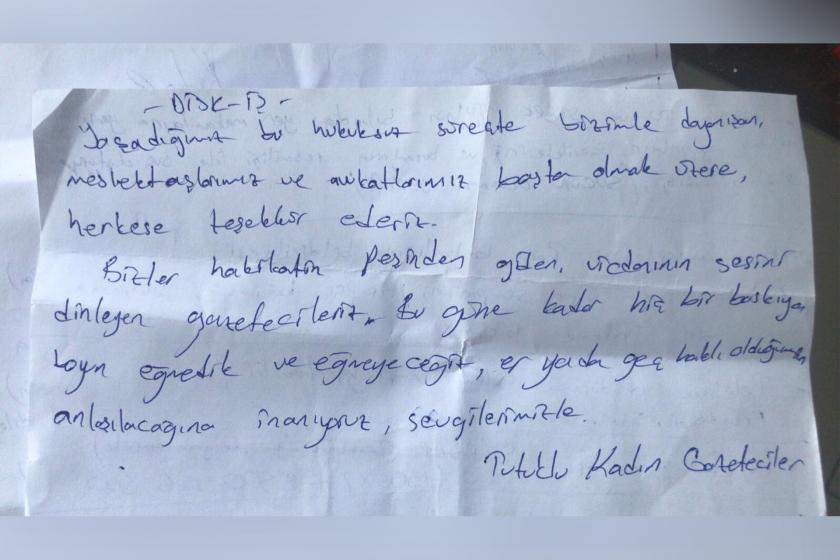 - DİSK-İŞ -
Yaşadığımız bu hukuksuz süreçte bizimle dayanışan,
meslektaşlarımız ve avukatlarımız başta olmak üzere,
herkese teşekkür ederiz.
Bizler hakikatin peşinden giden, vicdanının sesini
dinleyen gazetecileriz. Bu güne kadar hiç bir baskıya
boyn eğmedik ve eğmeyeceğiz, er yada geç haklı olduğumuzun
anlaşılacağına inanıyoruz, sevgilerimizle.
Tutuklu Kadın Gazeteciler